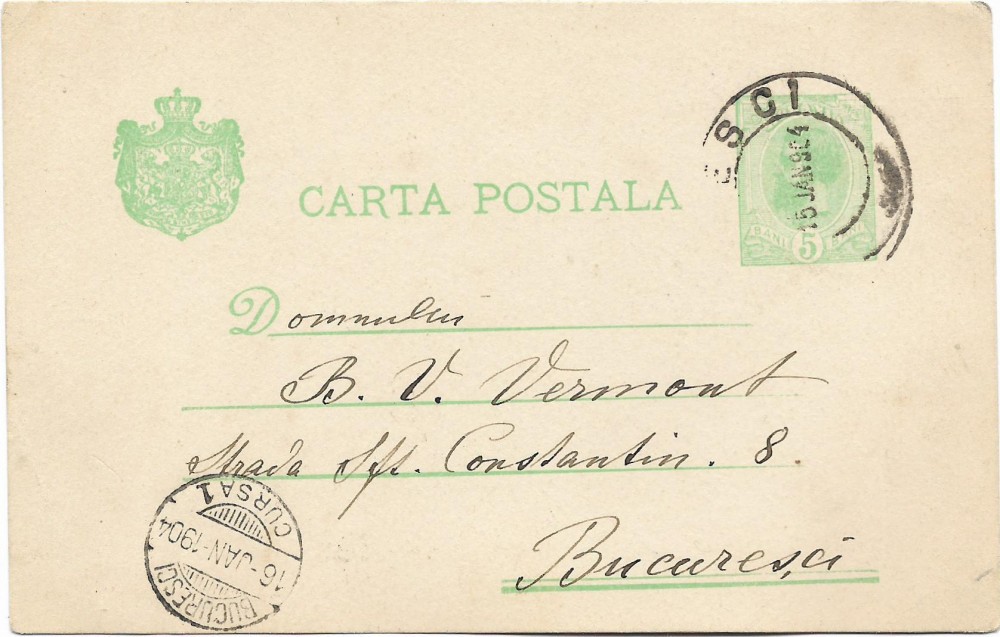 ESCI
15 JAN 904
CARTA POSTALA
BANI 5 BANI
Domnului
B. V. Vermont
Strada Sft. Constantin. 8
Bucuresci
CURSA 1
16-JAN-1904
BUCURESCI